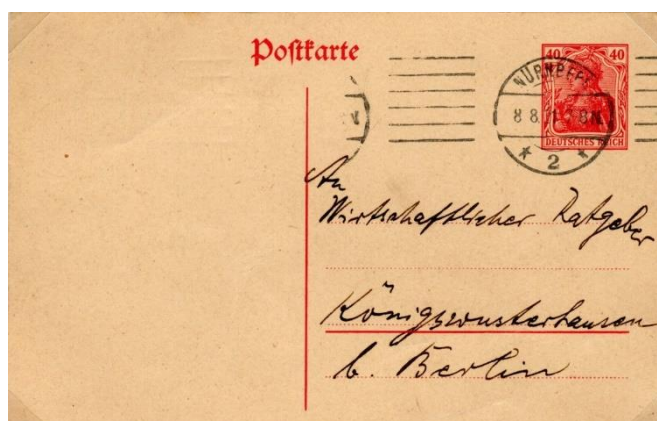 Postkarte
40 40
DEUTSCHES REICH
8 8
* 2 *
An
Wirtschaftlicher Ratgeber
Königswusterhausen
b. Berlin